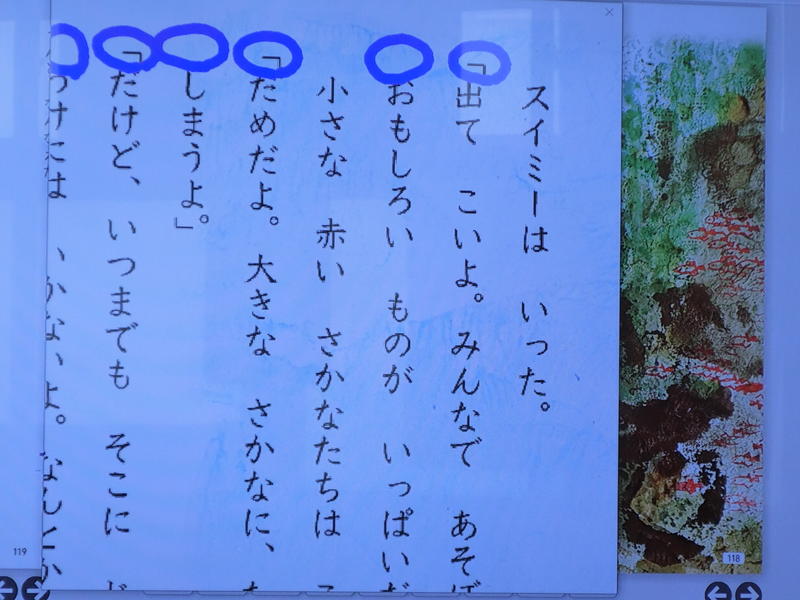 スイミーは いった。
「出て こいよ。みんなで あそぼ
おもしろい ものが いっぱいだ
小さな 赤い さかなたちは
「ためだよ。大きな さかなに、
しまうよ。」
「だけど、いつまでも そこに
わけには いかないよ。なんとか
118
119